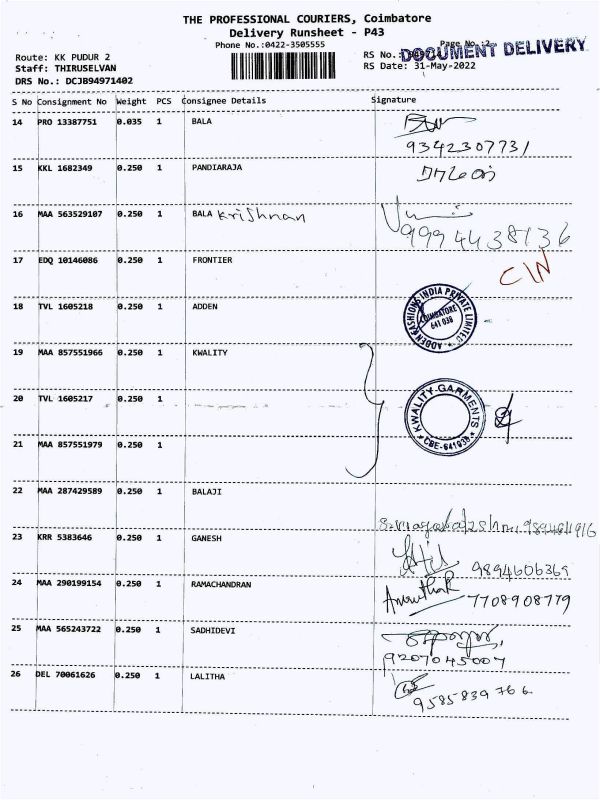 THE PROFESSIONAL COURIERS, Coimbatore
Delivery Runsheet - P43
Phone No.:0422-3505555
Page No.:2
DOCUMENT DELIVERY
Route: KK PUDUR 2
RS No.:
Staff: THIRUSELVAN
RS Date: 31-May-2022
DRS No.: DCJB94971402
S No Consignment No Weight PCS Consignee Details Signature
14 PRO 13387751 0.035 1 BALA
9342307731
15 KKL 1682349 0.250 1 PANDIARAJA
16 MAA 563529107 0.250 1 BALA Krishnan
9994438136
17 EDQ 10146086 0.250 1 FRONTIER
18 TVL 1605218 0.250 1 ADDEN
ADDEN FASHIONS INDIA PRIVATE LIMITED
COIMBATORE
641 038
19 MAA 857551966 0.250 1 KWALITY
20 TVL 1605217 0.250 1
KWALITY GARMENTS
CBE-641038
21 MAA 857551979 0.250 1
22 MAA 287429589 0.250 1 BALAJI
23 KRR 5383646 0.250 1 GANESH
9894606369
24 MAA 290199154 0.250 1 RAMACHANDRAN
7708908779
25 MAA 565243722 0.250 1 SADHIDEVI
9207045007
26 DEL 70061626 0.250 1 LALITHA
9585839766